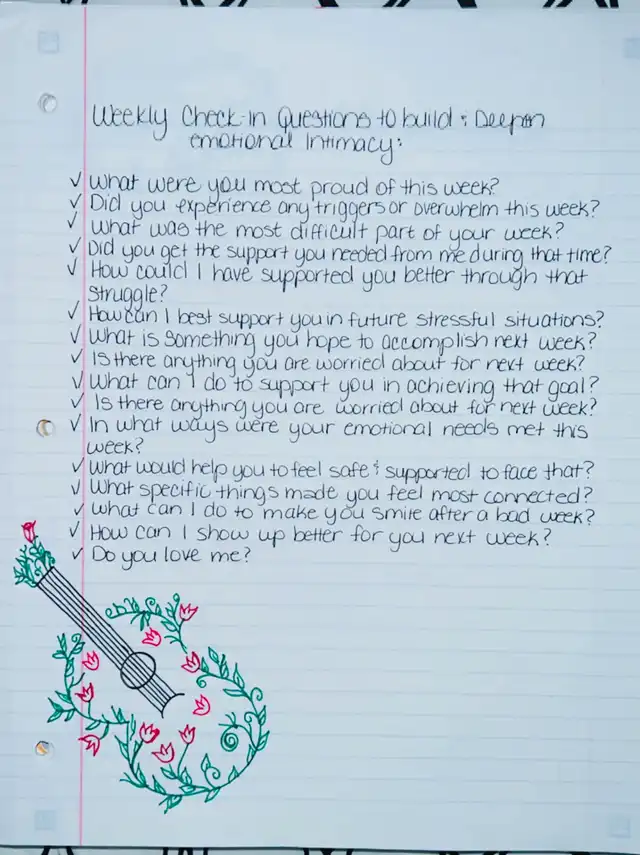 Weekly Check-In Questions to build & Deepen
emotional Intimacy:
✓ What were you most proud of this week?
✓ Did you experience any triggers or overwhelm this week?
✓ What was the most difficult part of your week?
✓ Did you get the support you needed from me during that time?
✓ How could I have supported you better through that
struggle?
✓ How can I best support you in future stressful situations?
✓ What is something you hope to accomplish next week?
✓ Is there anything you are worried about for next week?
✓ What can I do to support you in achieving that goal?
✓ Is there anything you are worried about for next week?
✓ In what ways were your emotional needs met this
week?
✓ What would help you to feel safe & supported to face that?
✓ What specific things made you feel most connected?
✓ What can I do to make you smile after a bad week?
✓ How can I show up better for you next week?
✓ Do you love me?